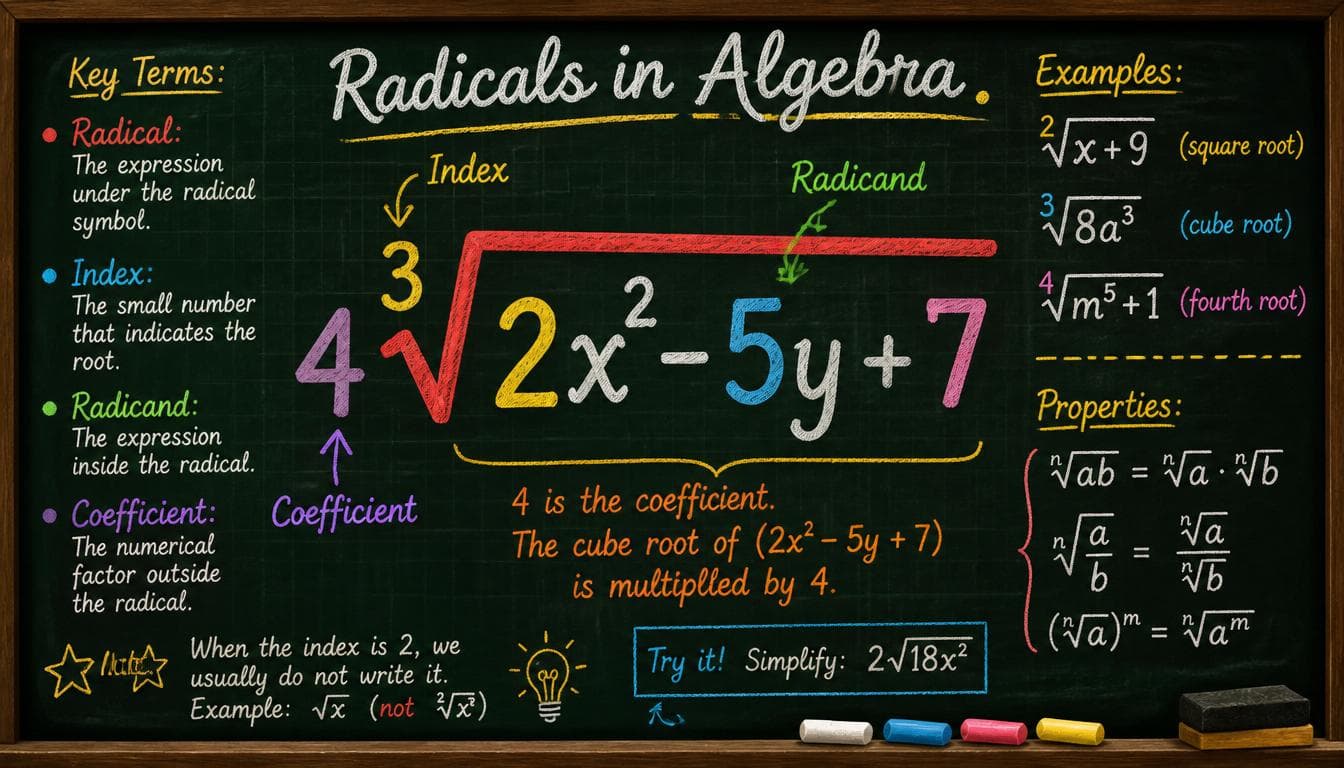 Radicals in Algebra.
Key Terms:
Radical:
The expression
under the radical
symbol.
Index:
The small number
that indicates the
root.
Radicand:
The expression
inside the radical.
Coefficient:
The numerical
factor outside
the radical.
Index
Radicand
4∛(2x² - 5y + 7)
Coefficient
4 is the coefficient.
The cube root of (2x² - 5y + 7)
is multiplled by 4.
When the index is 2, we
usually do not write it.
Example: √x (not ²√x²)
Try it! Simplify: 2√18x²
Examples:
²√(x+9) (square root)
³√(8a³) (cube root)
⁴√(m⁵+1) (fourth root)
Properties:
ⁿ√(ab) = ⁿ√a · ⁿ√b
ⁿ√(a/b) = ⁿ√a / ⁿ√b
(ⁿ√a)ᵐ = ⁿ√(aᵐ)